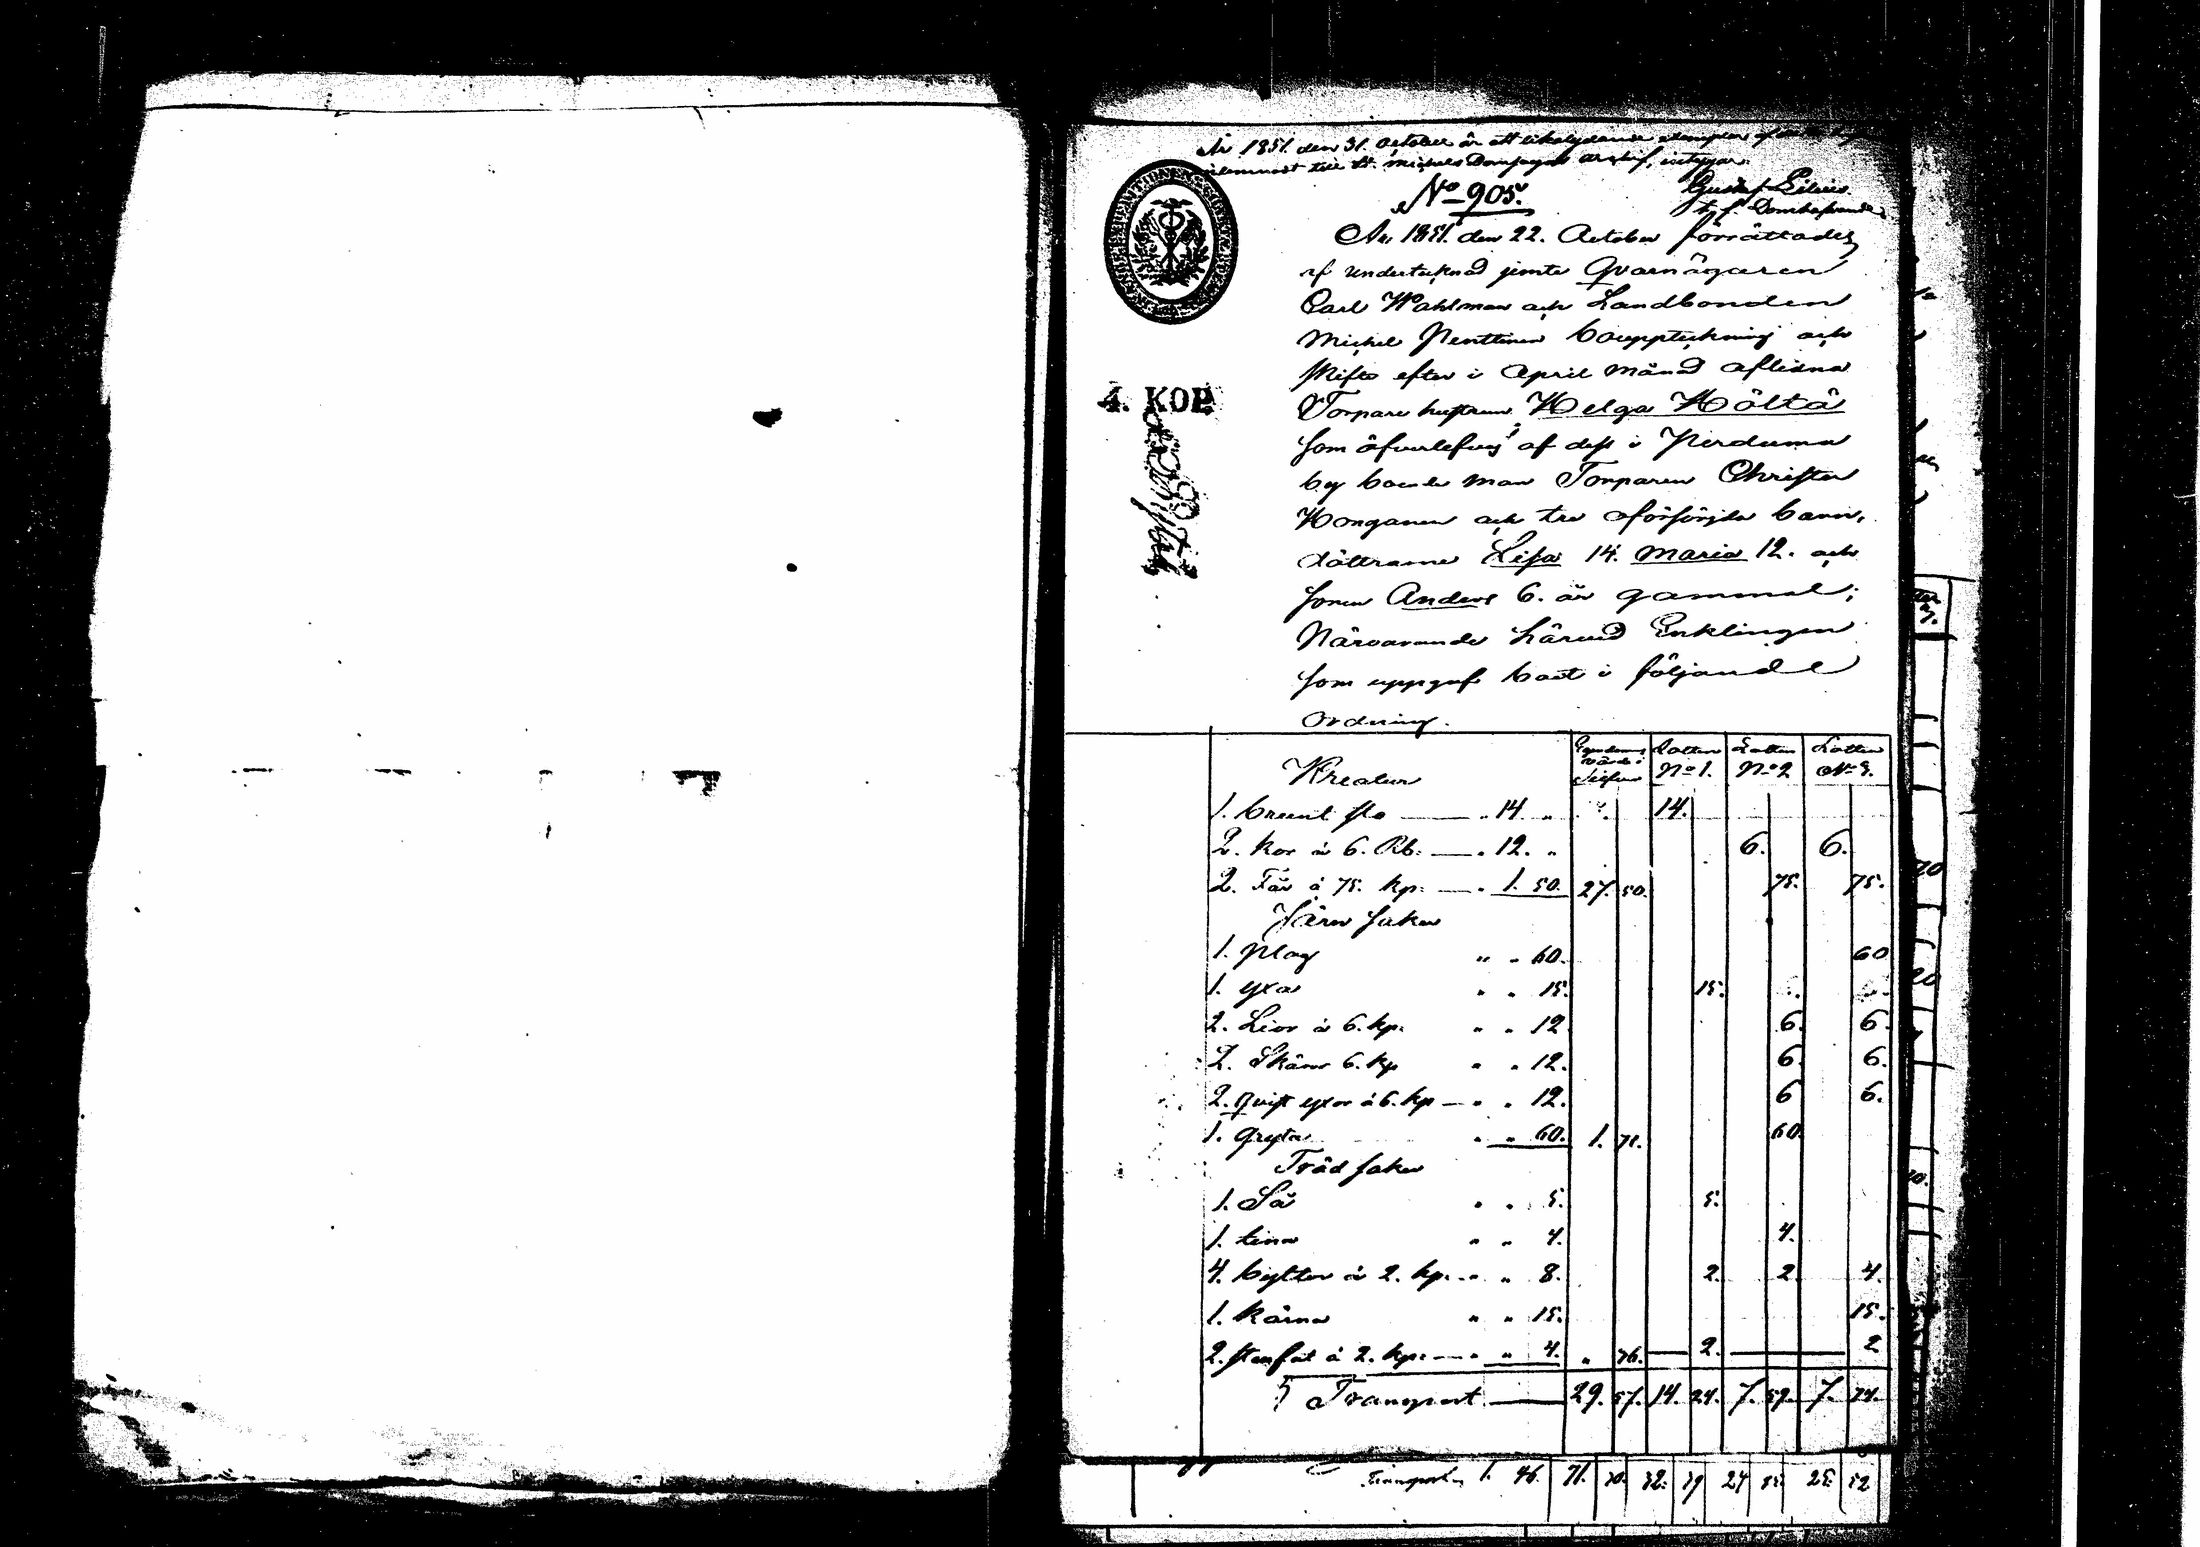 År 1851. den 31. October är ett likalydande exemplar af
inlemnadt till St. Michels Domsagas arkif, intygar.
Gustaf
t. f. Domhafvande
No 905.
År 1851. den 22. October förrättades
af undertecknad jemte Qvarnägaren
Carl Wahlman och Landbonden
Michel Penttinen bouppteckning och
skifte efter i April månad aflidna
Torpare hustrun Helga Hölttä
som öfverlefves af dess i Pirduma
by boende man Torparen Christer
Honganen och tre oförsörjda barn,
döttrarne Lisa 14. Maria 12. och
sonen Anders 6. år gammal;
Närvarande härvid Enklingen
som uppgaf boet i följande
ordning.
4. KOP.
Kreatur
Egendomens värde i Silfver
Lotten No 1.
Lotten No 2
Lotten No 3.
1. brunt sto — " 14 " 14.
2. kor à 6. Rb. — " 12. " 6. 6.
2. Får à 75. kp. — " 1. 50. 27. 50. 75. 75.
Järn saker
1. Plog " " 60. 60
1. yxa " " 15. 15.
2. Liar à 6. kp. " " 12 6. 6.
2. Skäror 6. kp " " 12. 6. 6.
2. qvist yxor à 6. kp — " " 12. 6 6.
1. Gryta " " 60. 1. 71. 60.
Träd saker
1. Så " " 5. 5.
1. tina " " 4. 4.
4. byttor à 2. kp. — " " 8. 2. 2. 4.
1. kärna " " 15. 15.
2. stenfat à 2. kp. — " " 4. " 36. — 2. — 2
Transport — 29. 57. 14. 24. 7. 59. 7. 74.
Transport 1. 46. 71. 70. 24 25 52